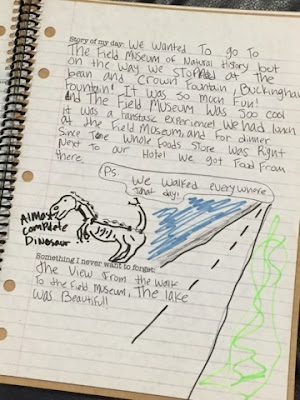 Story of my day: We wanted To go To
The Field Museum of Natural History but
on the way we stopped at The
bean and Crown Fountain, Buckingham
Fountain! It was so much Fun!
And The Field Museum was Soo cool
it was a Fantastic experience! We had lunch
at the Field Museum, and For dinner
Since The Whole Foods Store was Right
Next To our Hotel we got Food From
there.
Ps.
We walked everywhere
that day!
Almost
complete
Dinosaur
Something I never want to forget:
The View From the walk
To the Field Museum, The lake
was Beautiful!